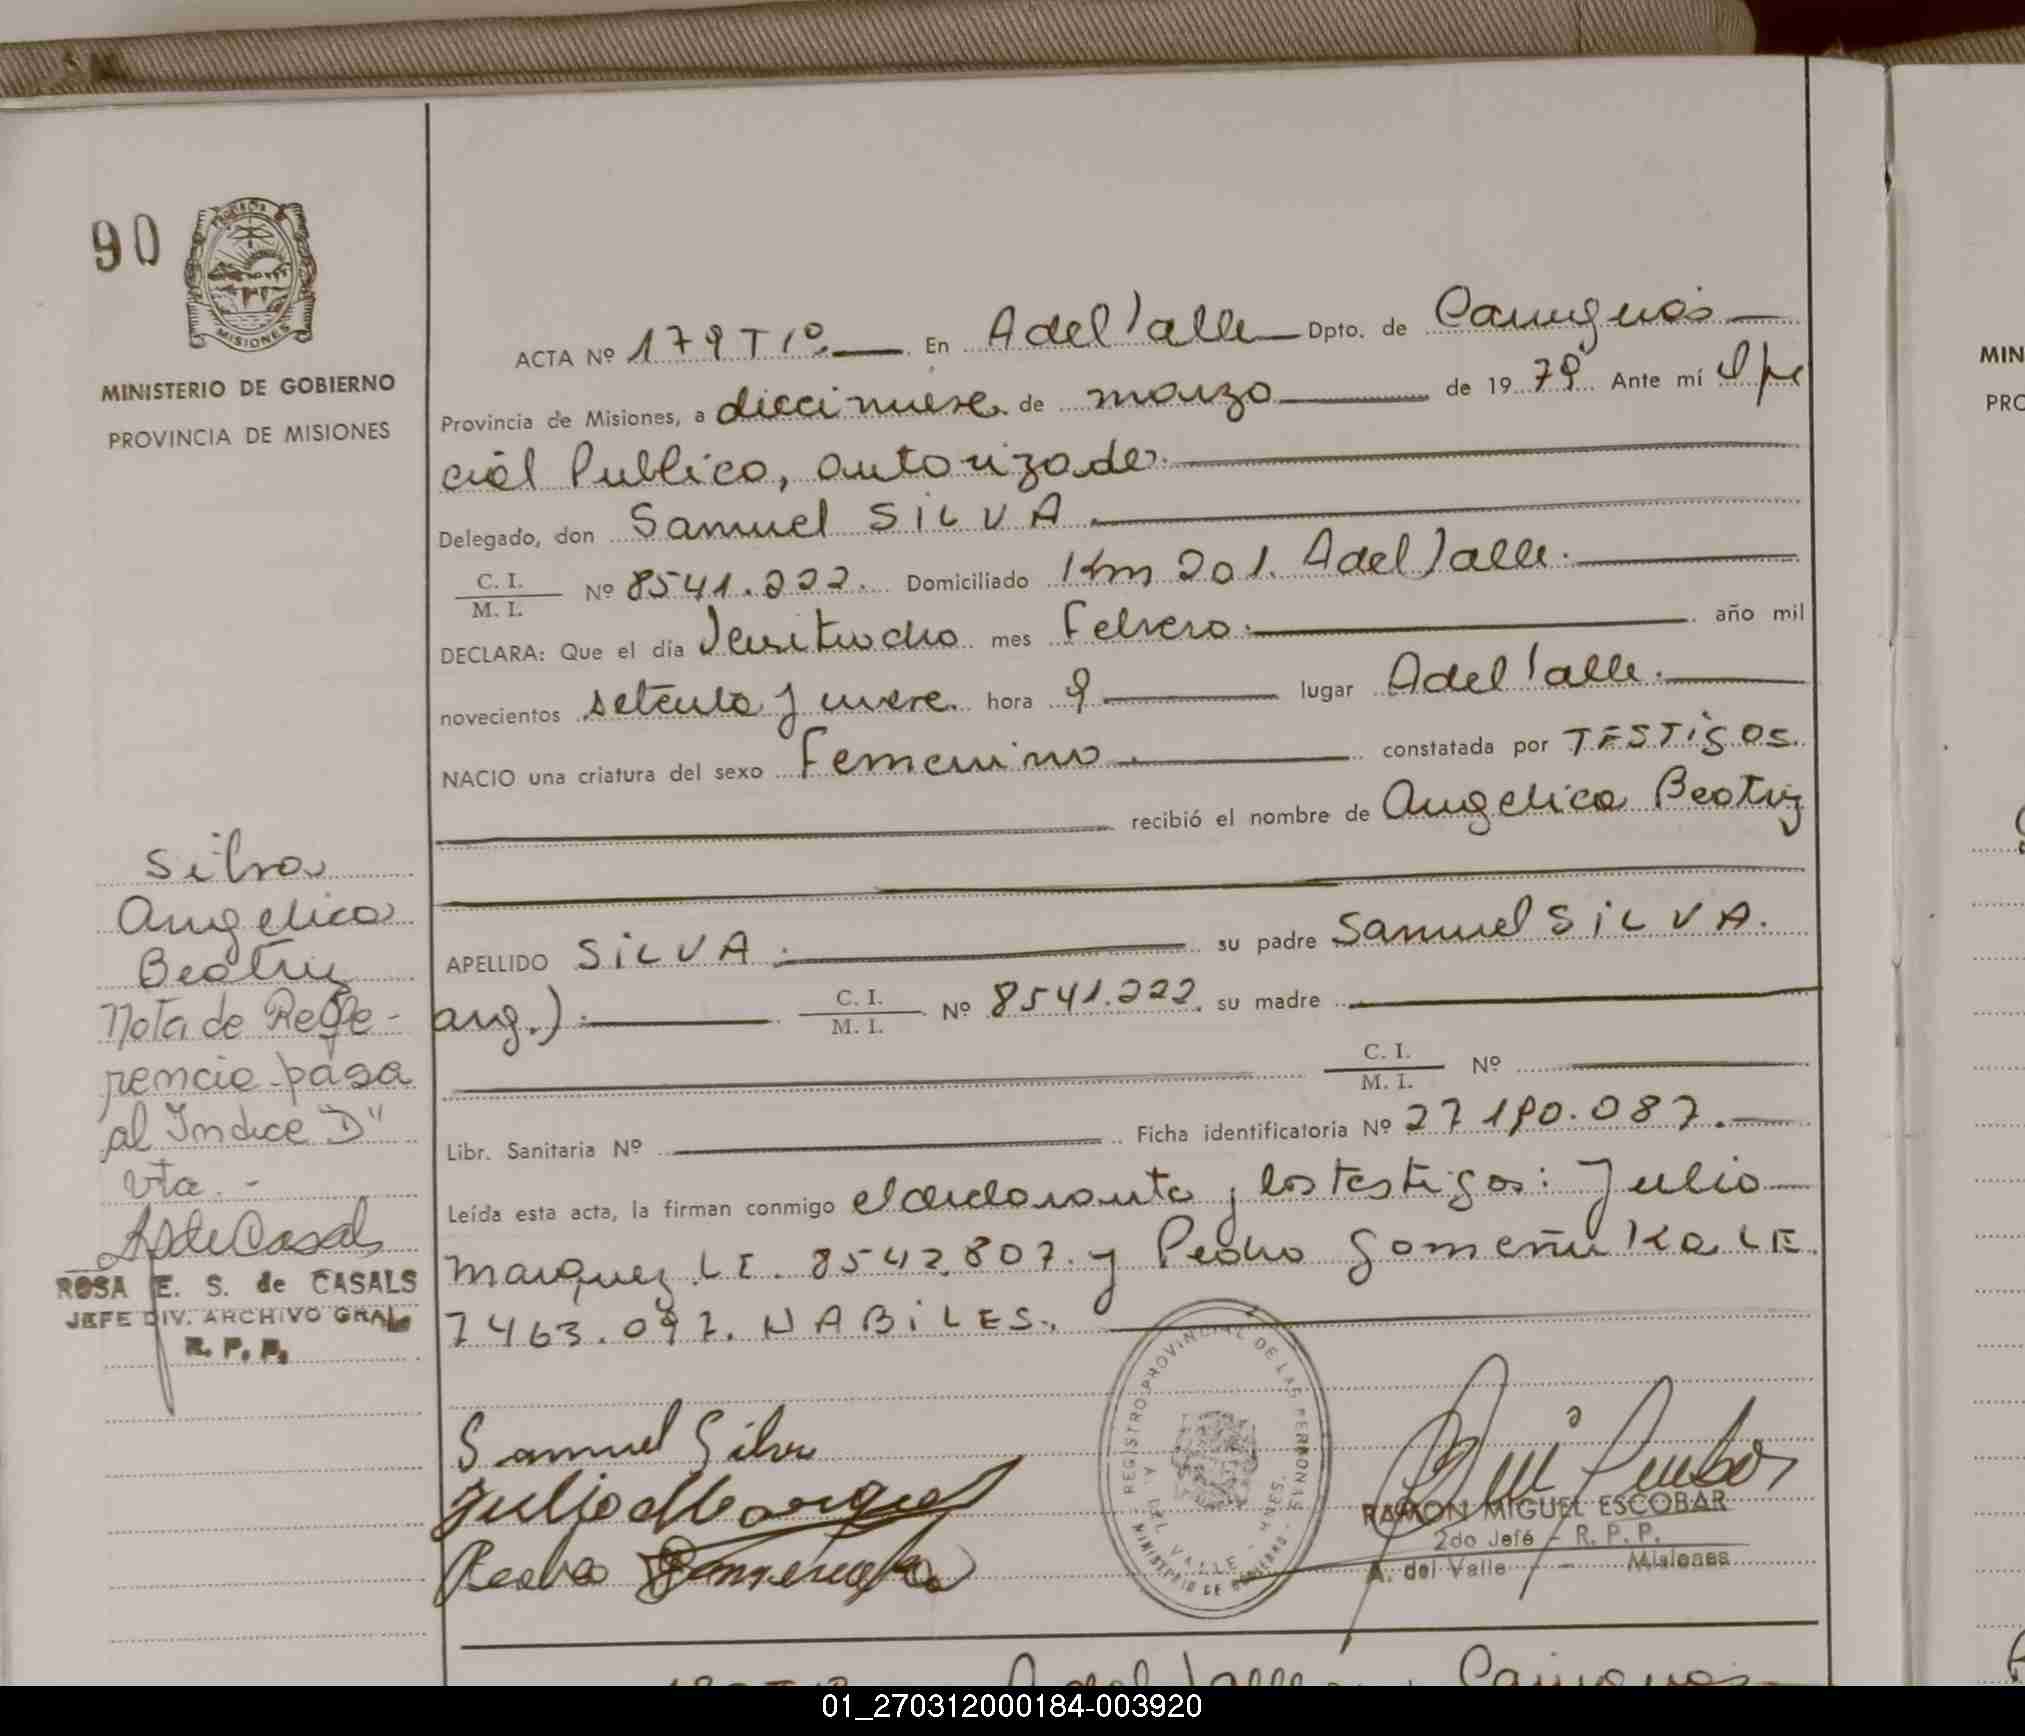 90
PROVINCIA
MISIONES
MINISTERIO DE GOBIERNO
PROVINCIA DE MISIONES
ACTA Nº 179 T 1º. En A del Valle Dpto. de Cainguás
Provincia de Misiones, a diecinueve de marzo de 1979 Ante mí Ofi
cial Publico, autorizado.
Delegado, don Samuel SILVA
C. I.
M. I.
Nº 8541.222. Domiciliado Km 201. A del Valle.
DECLARA: Que el día veintiocho mes Febrero. año mil
novecientos setenta y nueve. hora 9 lugar A del Valle.
NACIO una criatura del sexo Femenino. constatada por TESTIGOS.
recibió el nombre de Angelica Beatriz
APELLIDO SILVA. su padre Samuel SILVA.
arg.). C. I.
M. I.
Nº 8541.222. su madre
C. I.
M. I.
Nº
Libr. Sanitaria Nº Ficha identificatoria Nº 27190.087.
Leída esta acta, la firman conmigo el declarante y los testigos: Julio
Marquez LE. 8542.807. y Pedro LE.
7463.097. HABILES.
Silva
Angelica
Beatriz
Nota de Refe-
rencia pasa
al Indice "D"
vta. -
ROSA E. S. de CASALS
JEFE DIV. ARCHIVO GRAL.
R. P. P.
Samuel Silva
Julio Marquez
Pedro
REGISTRO PROVINCIAL DE LAS PERSONAS
A. DEL VALLE - MNES.
MINISTERIO DE GOBIERNO
RAMON MIGUEL ESCOBAR
2do Jefe - R. P. P.
A. del Valle - Misiones
A del Valle Cainguás
MIN
PRO
01_270312000184-003920